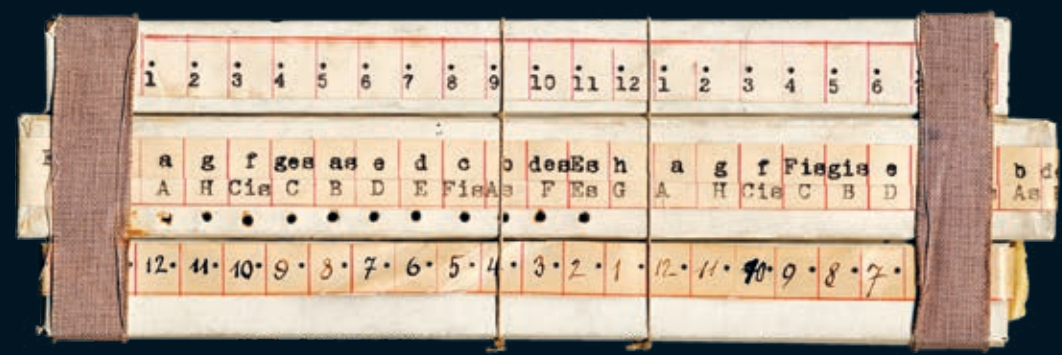 1 2 3 4 5 6 7 8 9 10 11 12 1 2 3 4 5 6
a g f ges as e d c b des Es h a g f Fis gis e b d
A H Cis C B D E Fis As F Es G A H Cis C B D As
12. 11. 10. 9. 8. 7. 6. 5. 4. 3. 2. 1. 12. 11. 10. 9. 8. 7.